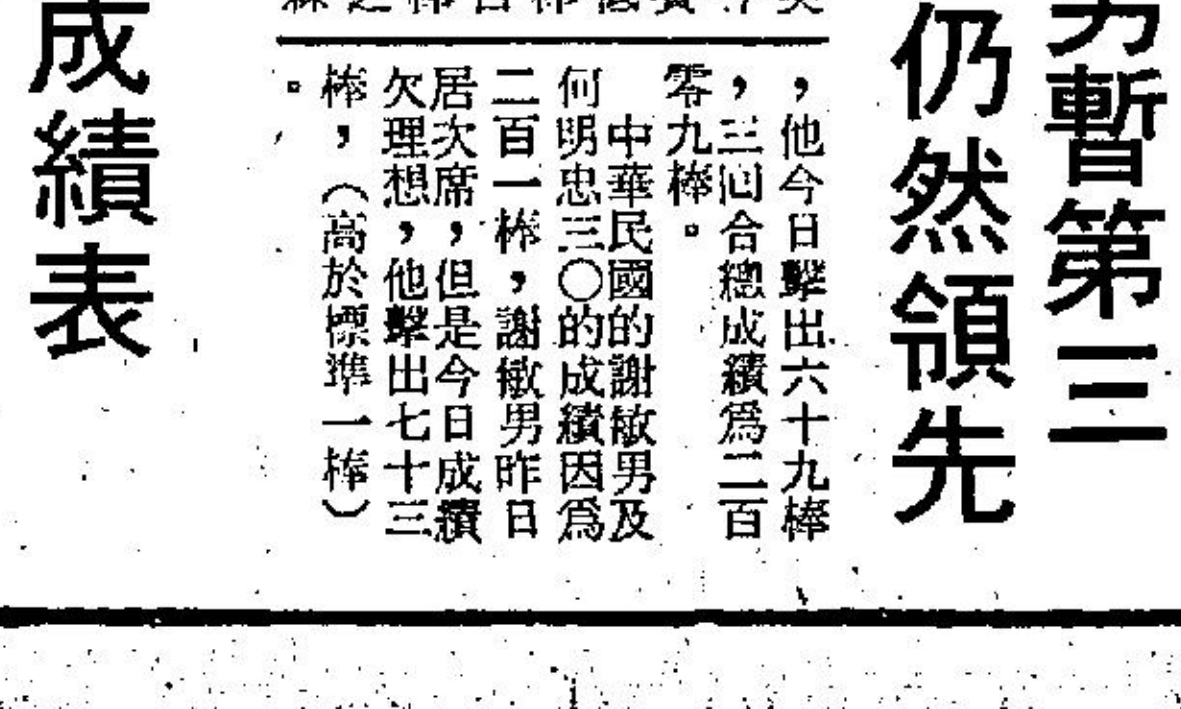 暫第三
仍然領先
，他今日擊出六十九棒
，三囘合總成績爲二百
零九棒。
中華民國的謝敏男及
何明忠三〇的成績因爲
二百一棒，謝敏男昨日
居次席，但是今日成績
欠理想，他擊出七十三
棒，（高於標準一棒）
。
成績表